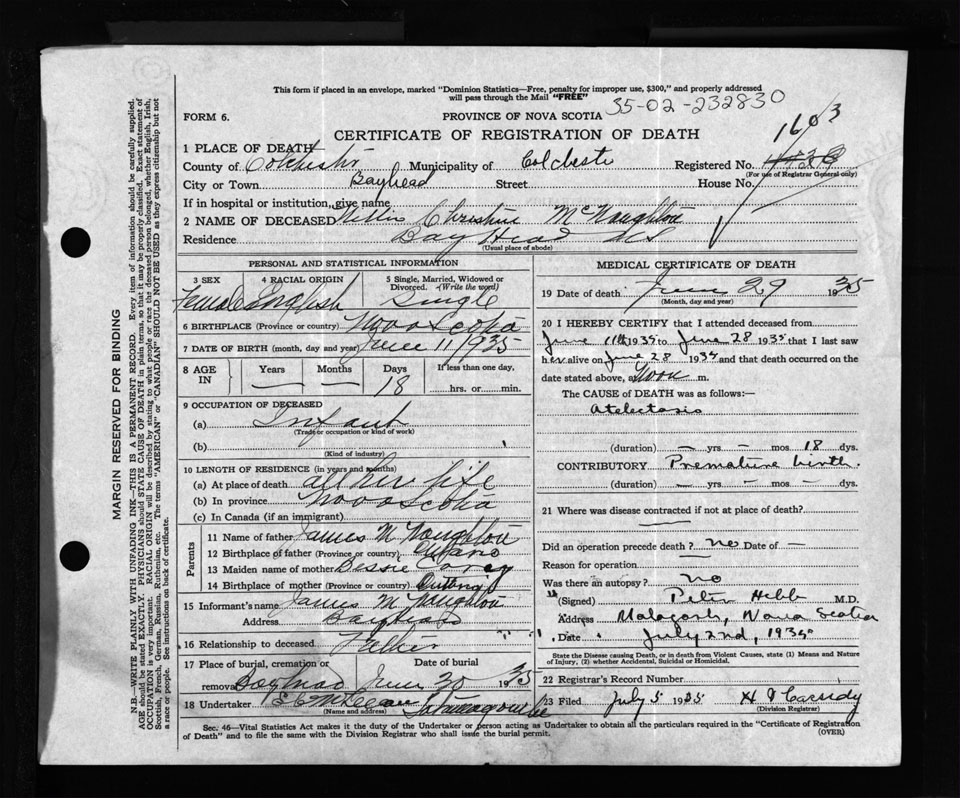 This form if placed in an envelope, marked "Dominion Statistics—Free, penalty for improper use, $300," and properly addressed
will pass through the Mail "FREE"
35-02-232830
FORM 6.
PROVINCE OF NOVA SCOTIA
CERTIFICATE OF REGISTRATION OF DEATH
1603
1 PLACE OF DEATH
County of Colchester Municipality of Colcheste Registered No.
(For use of Registrar General only)
City or Town Bayhead Street House No.
If in hospital or institution, give name
2 NAME OF DECEASED Christine McNaughton
Residence Bay Head N.S.
(Usual place of abode)
PERSONAL AND STATISTICAL INFORMATION
3 SEX 4 RACIAL ORIGIN 5 Single, Married, Widowed or Divorced. (Write the word)
Female English Single
6 BIRTHPLACE (Province or country) Nova Scotia
7 DATE OF BIRTH (month, day and year) June 11/935
8 AGE IN Years Months Days If less than one day,
— — 18 hrs. or min.
9 OCCUPATION OF DECEASED
(a) Infant
(Trade or occupation or kind of work)
(b)
(Kind of industry)
10 LENGTH OF RESIDENCE (in years and months)
(a) At place of death all her life
(b) In province Nova Scotia
(c) In Canada (if an immigrant)
Parents
11 Name of father James McNaughton
12 Birthplace of father (Province or country)
13 Maiden name of mother Bessie
14 Birthplace of mother (Province or country)
15 Informant's name James McNaughton
Address Bayhead
16 Relationship to deceased Father
17 Place of burial, cremation or removal Bayhead Date of burial June 30 1935
18 Undertaker Tatamagouche
(Name and address)
MEDICAL CERTIFICATE OF DEATH
19 Date of death June 29 1935
(Month, day and year)
20 I HEREBY CERTIFY that I attended deceased from
June 11th 1935 to June 28 1935 that I last saw
her alive on June 28 1935 and that death occurred on the
date stated above, at Noon m.
The CAUSE OF DEATH was as follows:—
Atelectasis
(duration) — yrs — mos 18 dys.
CONTRIBUTORY Premature birth.
(duration) — yrs — mos — dys.
21 Where was disease contracted if not at place of death?
—
Did an operation precede death? no Date of —
Reason for operation —
Was there an autopsy? no
(Signed) Peter Hebb M.D.
Address Malagash, Nova Scotia
Date July 2nd, 1935
State the Disease Causing Death, or in Death from Violent Causes, state (1) Means and Nature
of Injury, (2) whether Accidental, Suicidal or Homicidal.
22 Registrar's Record Number
23 Filed July 5 1935 Cassidy
(Division Registrar)
Sec. 46—Vital Statistics Act makes it the duty of the Undertaker or person acting as Undertaker to obtain all the particulars required in the "Certificate of Registration
of Death" and to file the same with the Division Registrar who shall issue the burial permit.
(OVER)
MARGIN RESERVED FOR BINDING
N.B.—WRITE PLAINLY WITH UNFADING INK—THIS IS A PERMANENT RECORD. Every item of information should be carefully supplied.
AGE should be stated EXACTLY. PHYSICIANS should STATE CAUSE OF DEATH in plain terms, so that it may be properly classified. Exact statement of
OCCUPATION is very important. RACIAL ORIGIN will be described by stating to what people or race the deceased person belonged, whether English, Irish,
Scottish, French, German, Russian, Ruthenian, etc. The terms "AMERICAN" or "CANADIAN" SHOULD NOT BE USED as they express citizenship but not
a race or people. See instructions on back of certificate.